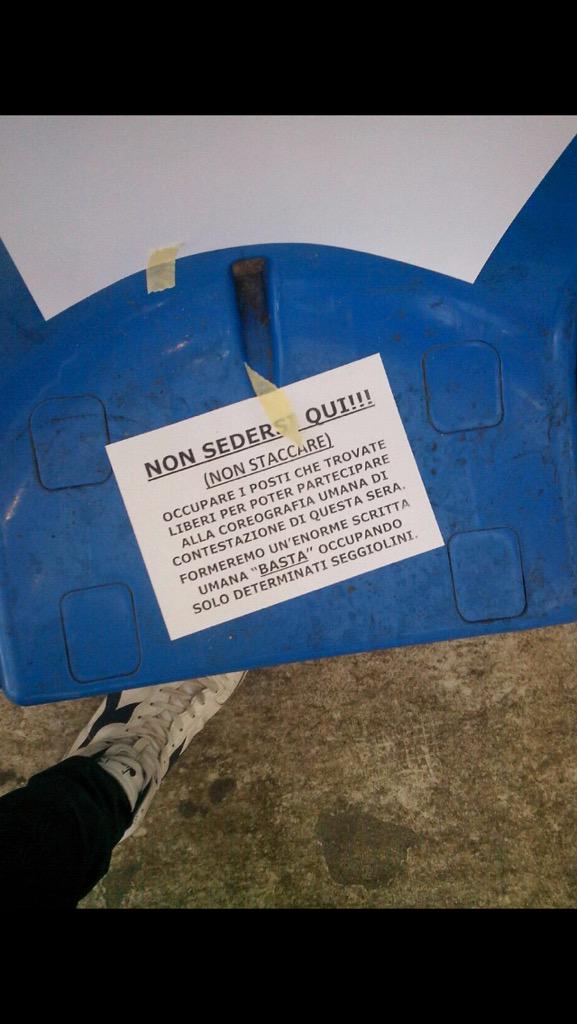 NON SEDERSI QUI!!!
(NON STACCARE)
OCCUPARE I POSTI CHE TROVATE
LIBERI PER POTER PARTECIPARE
ALLA COREOGRAFIA UMANA DI
CONTESTAZIONE DI QUESTA SERA.
FORMEREMO UN'ENORME SCRITTA
UMANA "BASTA" OCCUPANDO
SOLO DETERMINATI SEGGIOLINI.